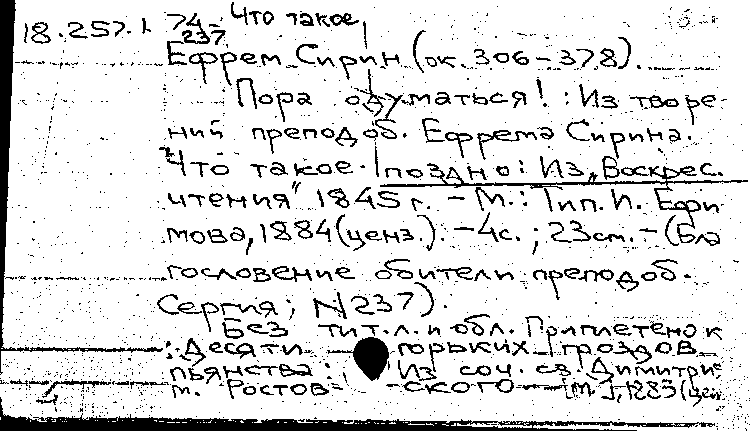 18.257.1. 74- Что такое
237
Ефрем Сирин (ок. 306-378).
Пора одуматься! : Из творе-
ний преподоб. Ефрема Сирина.
Что такое поздно: Из „Воскрес.
чтения" 1845 г. - М.: Тип. И. Ефи
мова, 1884 (ценз.). - 4с.; 23см. - (Бла
гословение обители преподоб.
Сергия; N 237).
Без тит. л. и обл. Приплетено к
: Десяти горьких гроздов
пьянства: Из соч. св. Димитри
м. Ростов- ского [М.], 1883 (цен